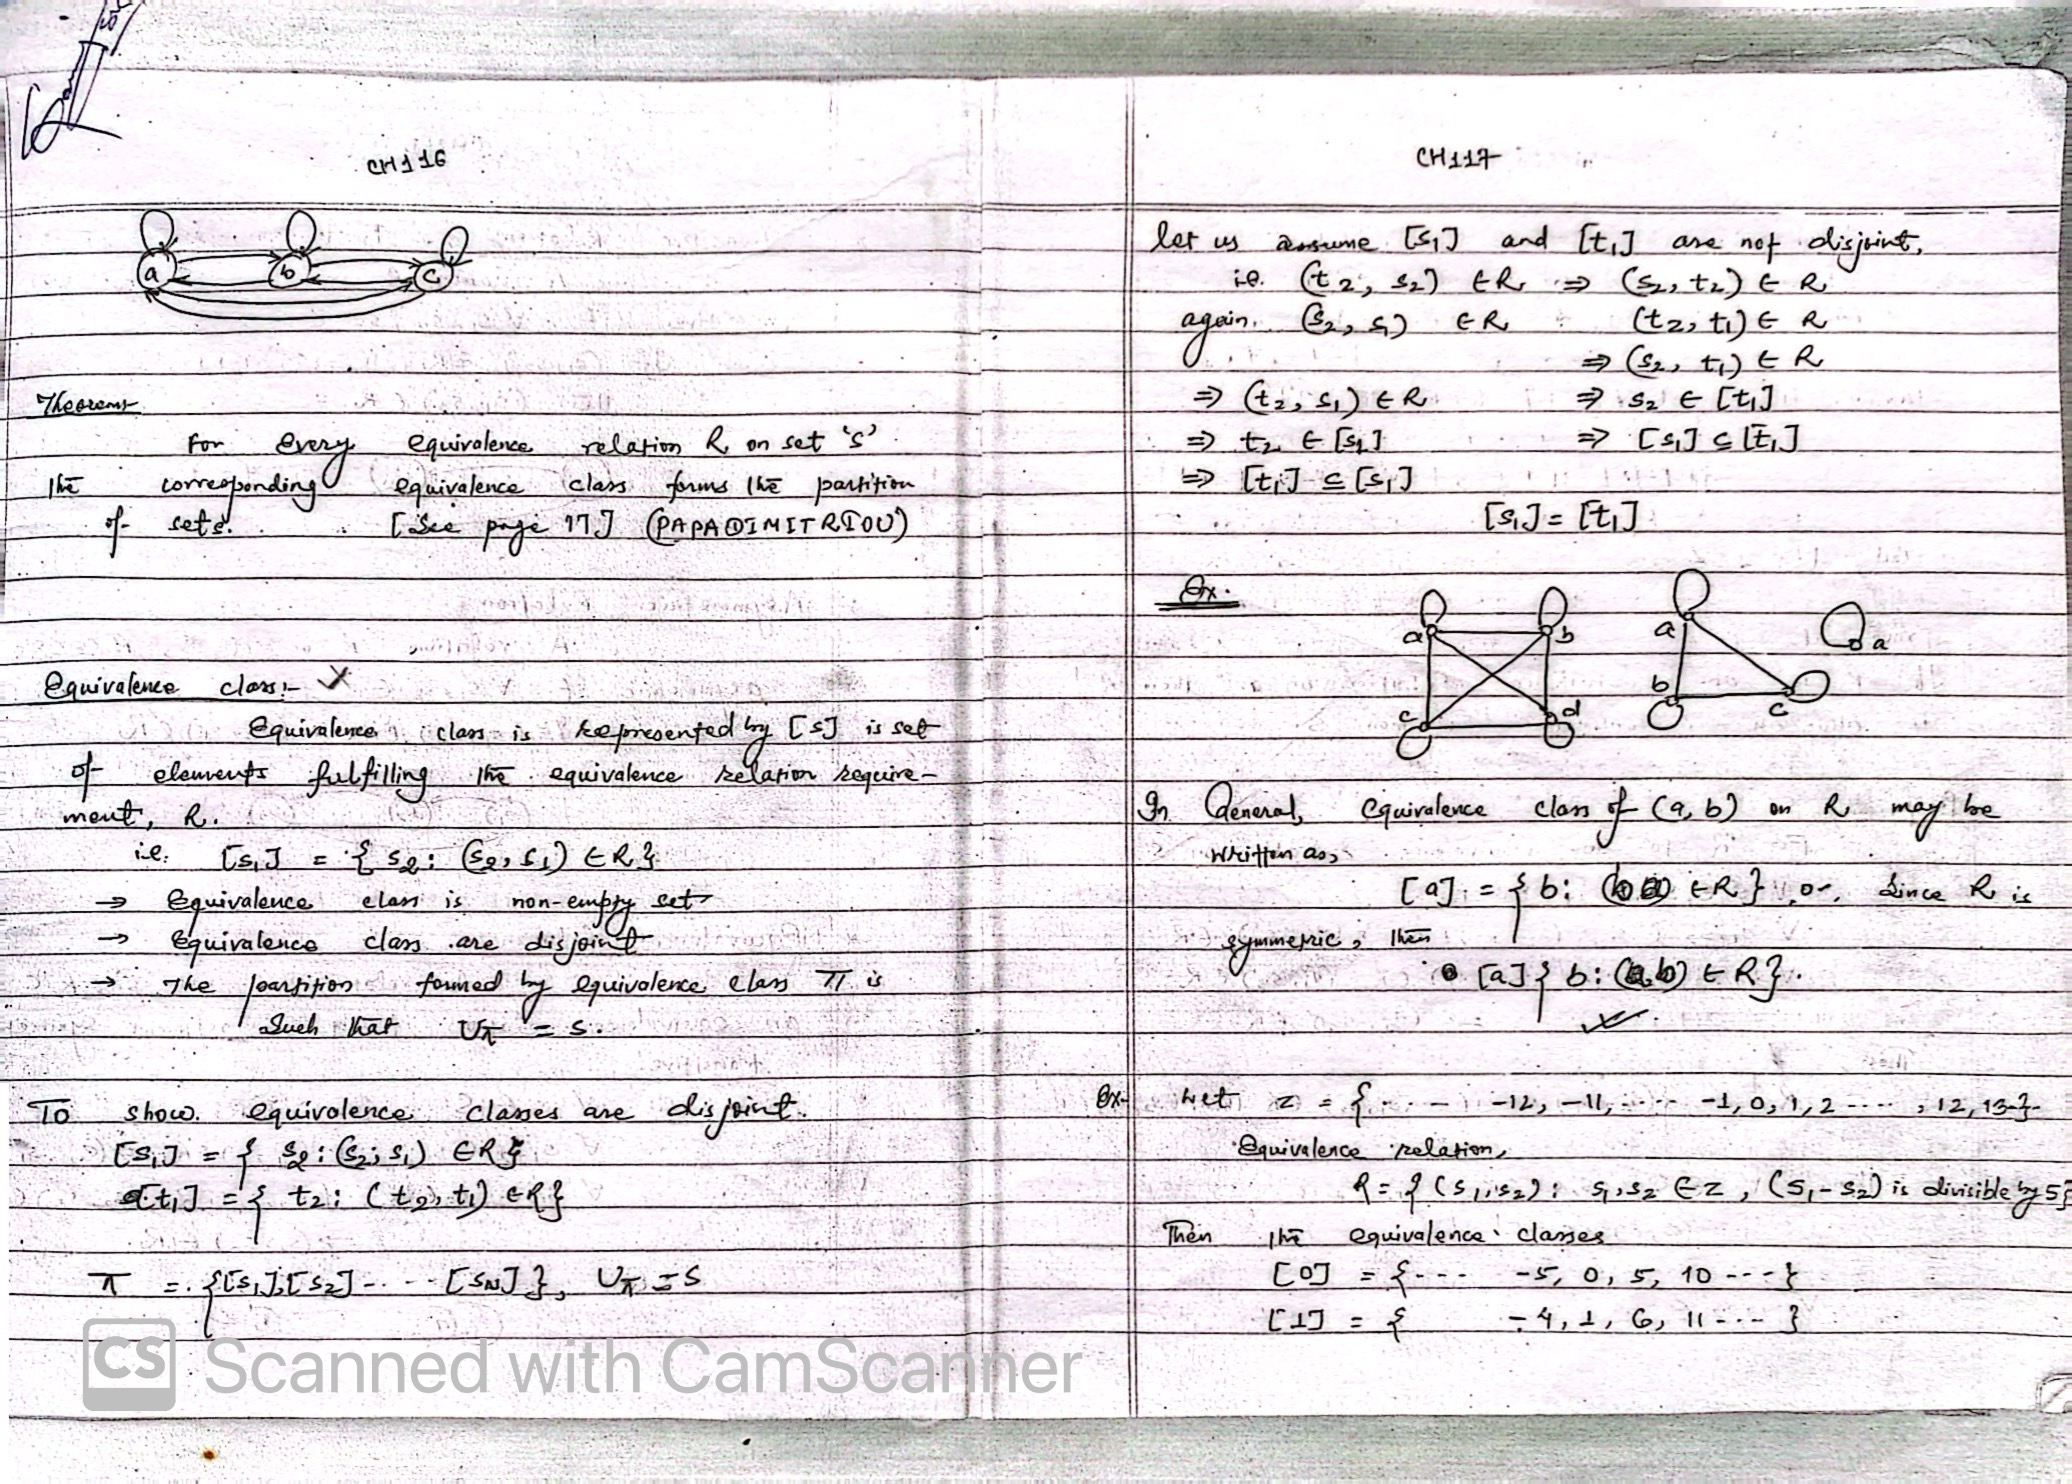 CH116
a b c
Theorem:-
For every equivalence relation R on set 's'
the corresponding equivalence class forms the partition
of sets. [See page 17] (PAPADIMITRIOU)
Equivalence class:-
Equivalence class is represented by [s] is set
of elements fulfilling the equivalence relation require-
ment, R.
i.e. [s₁] = { s₂: (s₂, s₁) ∈ R }
→ Equivalence class is non-empty set
→ Equivalence class are disjoint
→ The partition formed by equivalence class π is
Such that Uπ = S.
To show equivalence classes are disjoint.
[s₁] = { s₂: (s₂, s₁) ∈ R }
[t₁] = { t₂: (t₂, t₁) ∈ R }
π = {[s₁],[s₂] ---- [sN] }, Uπ = S
CS Scanned with CamScanner
CH117
let us assume [s₁] and [t₁] are not disjoint,
i.e. (t₂, s₂) ∈ R ⇒ (s₂, t₂) ∈ R
again (s₂, s₁) ∈ R (t₂, t₁) ∈ R
⇒ (s₂, t₁) ∈ R
⇒ (t₂, s₁) ∈ R ⇒ s₂ ∈ [t₁]
⇒ t₂ ∈ [s₁] ⇒ [s₁] ⊆ [t₁]
⇒ [t₁] ⊆ [s₁]
[s₁] = [t₁]
Ex.
a b c d a b c a
In General, equivalence class of (a, b) on R may be
written as,
[a] = { b: ∈ R } or, Since R is
symmetric, then
[a] { b: (a,b) ∈ R }.
Ex- Let Z = { ---- -12, -11, ---- -1, 0, 1, 2 ---- , 12, 13 }.
Equivalence relation,
R = { (s₁, s₂): s₁, s₂ ∈ Z, (s₁ - s₂) is divisible by 5}
Then the equivalence classes
[0] = { --- -5, 0, 5, 10 --- }
[1] = { -4, 1, 6, 11 --- }